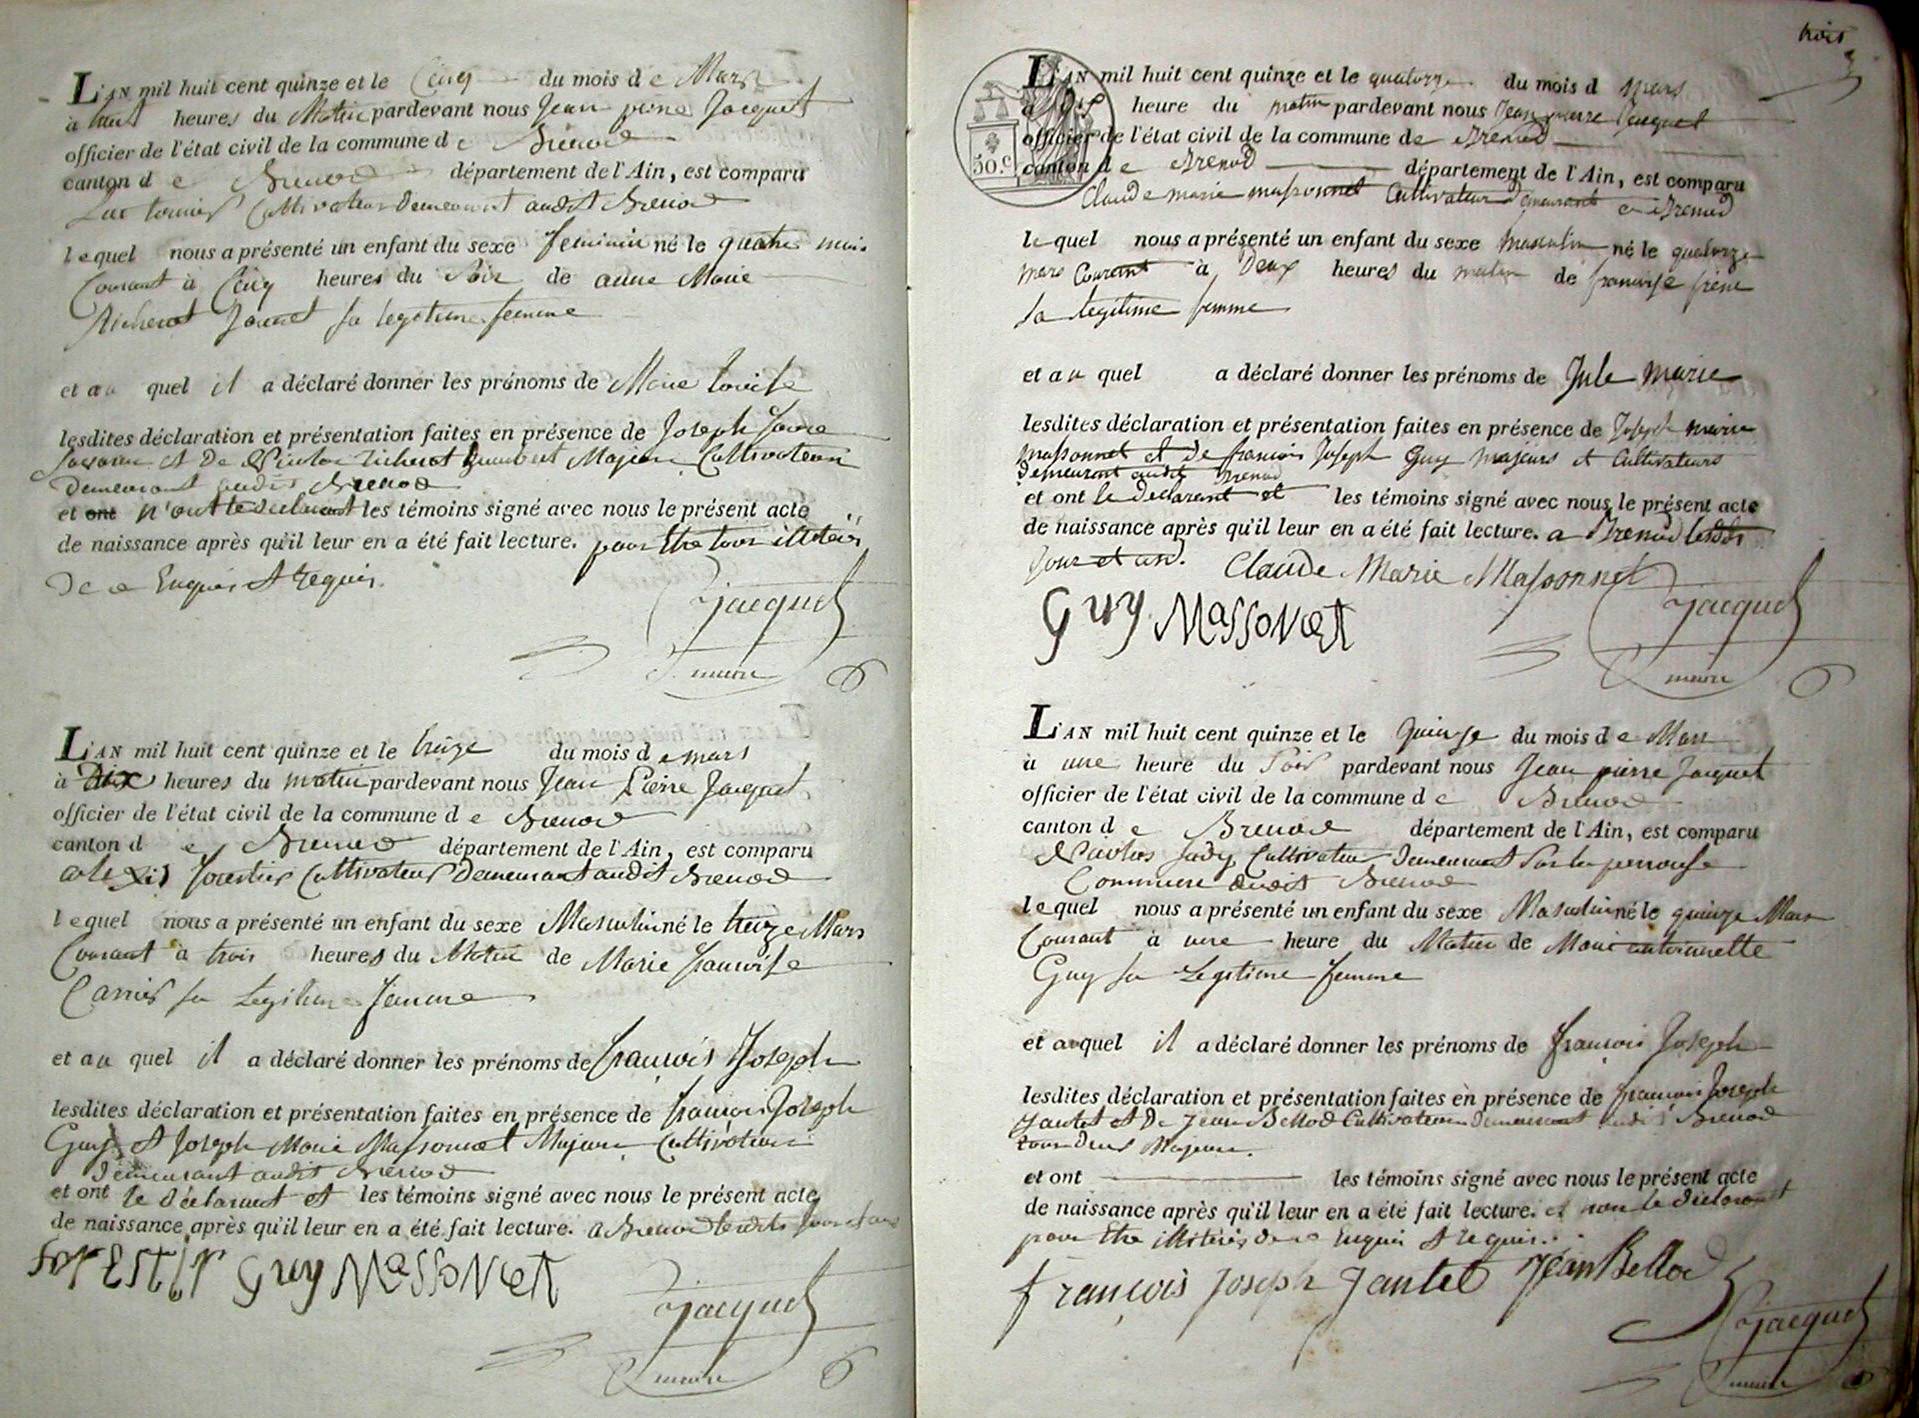 L'AN mil huit cent quinze et le Cinq du mois de Mars
à heures du Matin pardevant nous Jean pierre Jacquet
officier de l'état civil de la commune de Brenod
canton de Brenod département de l'Ain, est comparu
Luc Cultivateur Demeurant audit Brenod
lequel nous a présenté un enfant du sexe feminin né le quatre mois
Courant à Cinq heures du Soir de anne Marie
sa legitime femme
et au quel il a déclaré donner les prénoms de Marie Louise
lesdites déclaration et présentation faites en présence de Joseph
et De Majeurs Cultivateurs
Demeurant audit Brenod
et ont n'ont les témoins signé avec nous le présent acte
de naissance après qu'il leur en a été fait lecture. pour Etre tous illiterés
De ce Enquis et requis.
Jacquet
maire
L'AN mil huit cent quinze et le treize du mois de mars
à Dix heures du matin pardevant nous Jean Pierre Jacquet
officier de l'état civil de la commune de Brenod
canton de Brenod département de l'Ain, est comparu
alexis forestier Cultivateur Demeurant audit Brenod
lequel nous a présenté un enfant du sexe Masculin né le treize Mars
Courant à trois heures du Matin de Marie francoise
Carrier sa Legitime femme
et au quel il a déclaré donner les prénoms de francois Joseph
lesdites déclaration et présentation faites en présence de francois Joseph
Guy et Joseph Marie Massonnet Majeurs Cultivateurs
Demeurant audit Brenod
et ont le déclarant et les témoins signé avec nous le présent acte
de naissance après qu'il leur en a été fait lecture. a Brenod lesdits jour et an
forEstir Guy MaSSoNeT
Jacquet
maire
trois
3
50.c
L'AN mil huit cent quinze et le quatorze du mois d mars
à Dix heure du matin pardevant nous Jean pierre Jacquet
officier de l'état civil de la commune de Brenod
canton de Brenod département de l'Ain, est comparu
Claude marie massonnet Cultivateur Demeurant a Brenod
lequel nous a présenté un enfant du sexe masculin né le quatorze
mars Courant à Deux heures du matin de francoise
sa legitime femme
et au quel a déclaré donner les prénoms de Jule marie
lesdites déclaration et présentation faites en présence de Joseph marie
massonnet et de francois Joseph Guy majeurs et Cultivateurs
Demeurant audit Brenod
et ont le declarant et les témoins signé avec nous le présent acte
de naissance après qu'il leur en a été fait lecture. a Brenod lesdits
jour et an. Claude Marie Massonnet
Guy MaSSoNeT
Jacquet
maire
L'AN mil huit cent quinze et le quinze du mois de Mars
à une heure du Soir pardevant nous Jean pierre Jacquet
officier de l'état civil de la commune de Brenod
canton de Brenod département de l'Ain, est comparu
Cultivateur Demeurant Sur la perouse
Commune dudit Brenod
lequel nous a présenté un enfant du sexe Masculin né le quinze Mars
Courant à une heure du Matin de Marie antoinette
Guy sa Legitime femme
et auquel il a déclaré donner les prénoms de francois Joseph
lesdites déclaration et présentation faites en présence de francois Joseph
Jantet et De Jean Bellod Cultivateurs Demeurant audit Brenod
tous Deux Majeurs.
et ont les témoins signé avec nous le présent acte
de naissance après qu'il leur en a été fait lecture. et non le déclarant
pour Etre illiteré de ce Enquis et requis.
françois Joseph Jantet Jean Bellod
Jacquet
maire